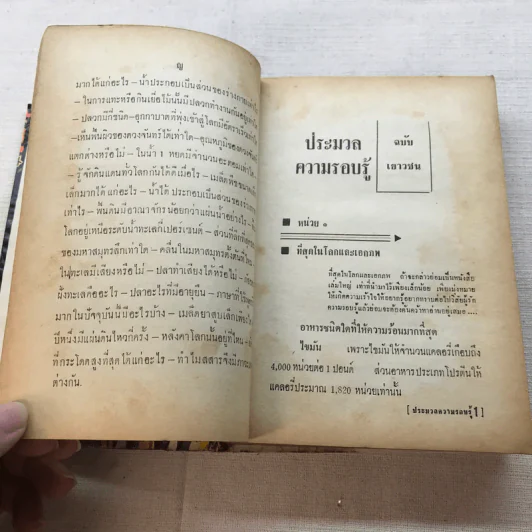 ญ
มากได้แก่อะไร – น้ำประกอบเป็นส่วนของร่างกาย
– ในการแทะหรือกินเยื่อไม้นั้นมีปลวกทำงานกันอยู่
– ปลวกมีกี่ชนิด – อุกกาบาตที่พุ่งเข้าสู่โลกมีอัตราเร็ว
– เห็นพื้นผิวของดวงจันทร์ได้เท่าใด – อุณหภูมิของ
แตกต่างหรือไม่ – ในน้ำ 1 หยดมีจำนวนอะตอม
– รู้จักดินแดนทั่วโลกกันได้ดีเมื่อไร – เมล็ดพืชขนาด
เล็กมากได้ แก่อะไร – น้ำใต้ ประกอบเป็นส่วนของ
เท่าไร – พื้นดินมีอาณาจักรน้อยกว่าแผ่นน้ำอย่างไร –
โลกอยู่เหนือระดับน้ำทะเลกี่เปอร์เซนต์ – ส่วนที่ลึกที่สุด
ของมหาสมุทรลึกเท่าใด – คลื่นในมหาสมุทรตั้งต้น
ในทะเลมีเสียงหรือไม่ – ปลาทำเสียงได้หรือไม่ –
ฝูงทะเลคืออะไร – ปลาอะไรที่มีอายุยืน – ภาษาที่ใช้
มากในปัจจุบันนี้มีอะไรบ้าง – เมล็ดยาสูบเล็กเพียงใด
ปีหนึ่งมีแผ่นดินไหวกี่ครั้ง – หลังคาโลกนั้นอยู่ที่ไหน –
ที่กระโดดสูงที่สุดได้แก่อะไร – ทำไมสสารจึงมีภาวะ
ต่างกัน.
ประมวล
ความรอบรู้
ฉบับ
เยาวชน
■ หน่วย ๑
■ ที่สุดในโลกและเอกภพ
ที่สุดในโลกและเอกภพ ถ้าจะกล่าวย่อมเป็นหนังสือ
เล่มใหญ่ เท่าที่นำมาไว้เพียงเล็กน้อย เพื่อมุ่งหมาย
ให้เกิดความเข้าใจให้อยากรู้อยากทราบต่อไปวิสัยผู้รัก
ความรอบรู้แล้วย่อมจะต้องค้นคว้าหาอ่านอยู่เสมอ....
อาหารชนิดใดที่ให้ความร้อนมากที่สุด
ไขมัน เพราะไขมันให้จำนวนแคลอรี่เกือบถึง
4,000 หน่วยต่อ 1 ปอนด์ ส่วนอาหารประเภทโปรตีนให้
แคลอรี่ประมาณ 1,820 หน่วยเท่านั้น
[ ประมวลความรอบรู้ 1 ]